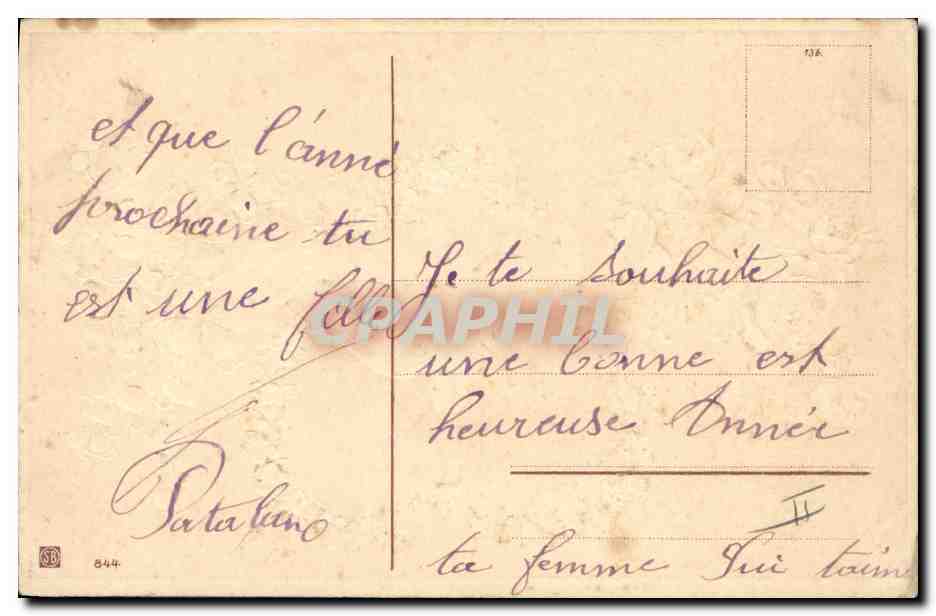 136.
et que l'anné
prochaine tu
est une fille
Je te souhaite
une bonne est
heureuse Année
II
ta femme qui taime
SB 844
CPAPHIL